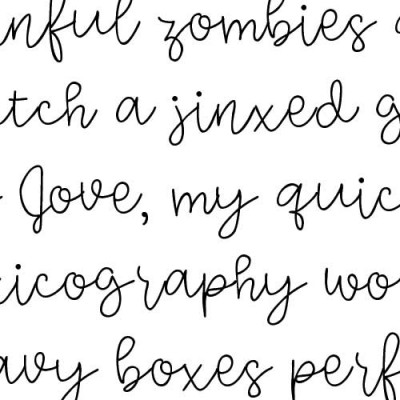 inful zombies
tch a jinxed g
Jove, my quic
icography wo
avy boxes perf